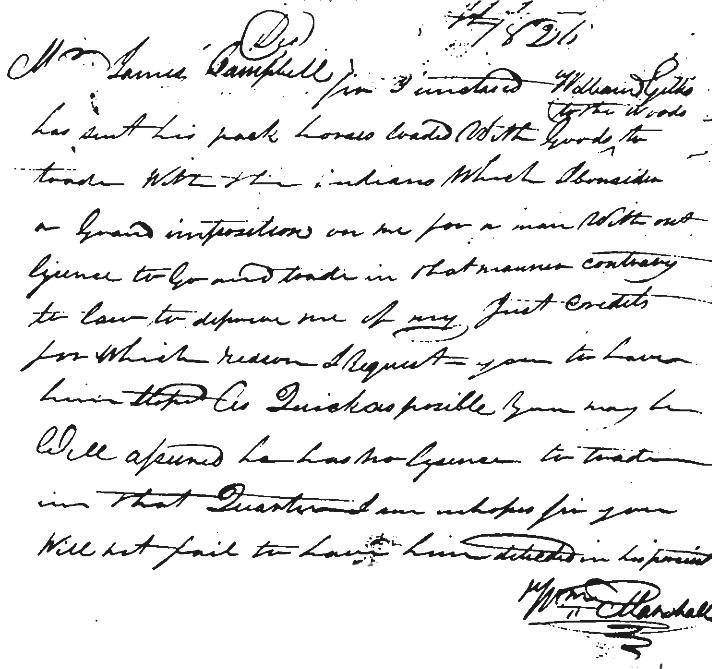 Dec 1826
Mr James Campbell Sir I understand William Gillis
to the woods
has sent his pack horses loaded With Goods ^ to
trade With the indians Which I Consider
a Grand imposition on me for a man With out
lysence to Go and trade in that manner contrary
to law to deprive me of my Just Credits
for Which reason I Request you to have
him stoped As Quick as posible you may be
Well assured he has no lysence to trade
in that Quarter I am in hopes sir you
Will not fail to have him detected in his
Wm Marshall